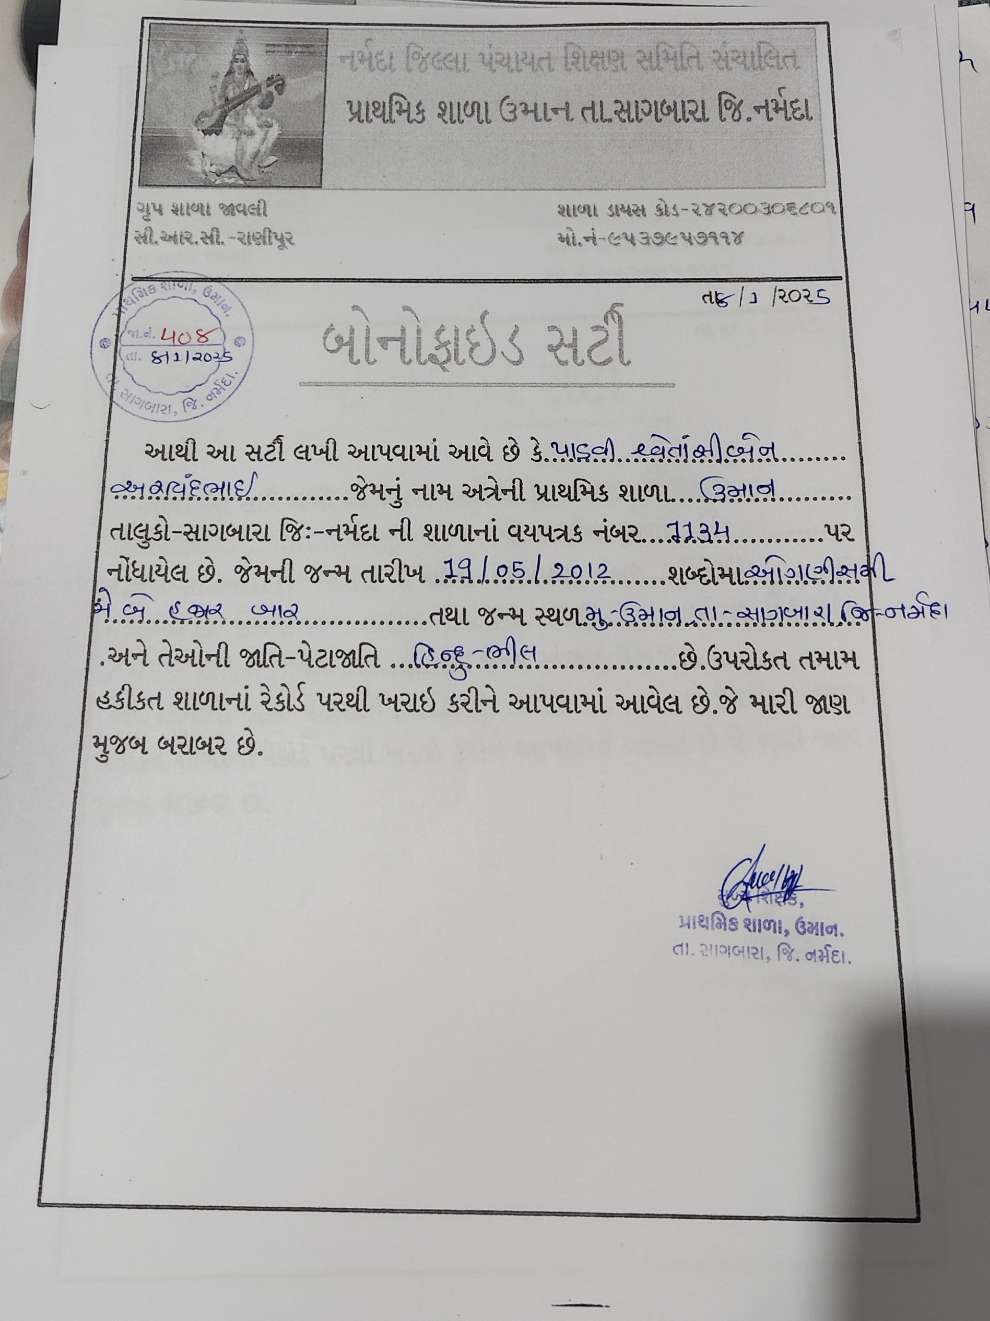 નર્મદા જિલ્લા પંચાયત શિક્ષણ સમિતિ સંચાલિત
પ્રાથમિક શાળા ઉમાન તા.સાગબારા જિ.નર્મદા
ગૃપ શાળા જાવલી
શાળા ડાયસ કોડ-૨૪૨૦૦૩૦૬૮૦૧
સી.આર.સી.-રાણીપૂર
મો.નં-૯૫૩૭૯૫૭૧૧૪
તા૪/૧/૨૦૨૫
પ્રાથમિક શાળા, ઉમાન.
જા.નં. ૫૦૪
તા. ૪/૧/૨૦૨૫
તા. સાગબારા, જિ. નર્મદા.
બોનોફાઇડ સર્ટી
આથી આ સર્ટી લખી આપવામાં આવે છે કે.પાડવી શ્વેતાંસીબેન
અરવિંદભાઇ.............જેમનું નામ અત્રેની પ્રાથમિક શાળા....ઉમાન..........
તાલુકો-સાગબારા જિઃ-નર્મદા ની શાળાનાં વયપત્રક નંબર...1134............પર
નોંધાયેલ છે. જેમની જન્મ તારીખ .19/05/2012.......શબ્દોમાઓગણીસમી
મે બે હજાર બાર.................તથા જન્મ સ્થળમુ-ઉમાન તા-સાગબારા જિ-નર્મદા
.અને તેઓની જાતિ-પેટાજાતિ ...હિન્દુ-ભીલ..................છે.ઉપરોકત તમામ
હકીકત શાળાનાં રેકોર્ડ પરથી ખરાઇ કરીને આપવામાં આવેલ છે.જે મારી જાણ
મુજબ બરાબર છે.
મુખ્ય શિક્ષક,
પ્રાથમિક શાળા, ઉમાન.
તા. સાગબારા, જિ. નર્મદા.